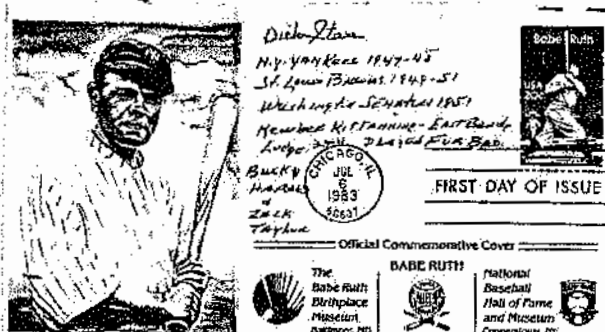 Dick Starr
N.Y. YANKEES 1947-48
St. Louis Browns 1949-51
Washington SENATORS 1951
KITTANNING - EAST Brady
PLAYED FOR
BUCKY
HARRIS
&
ZACK
Taylor
CHICAGO, IL
JUL
6
1983
60607
Babe Ruth
USA
FIRST DAY OF ISSUE
Official Commemorative Cover
The
Babe Ruth
Birthplace
Museum
Baltimore, MD
BABE RUTH
National
Baseball
Hall of Fame
and Museum
Cooperstown, NY